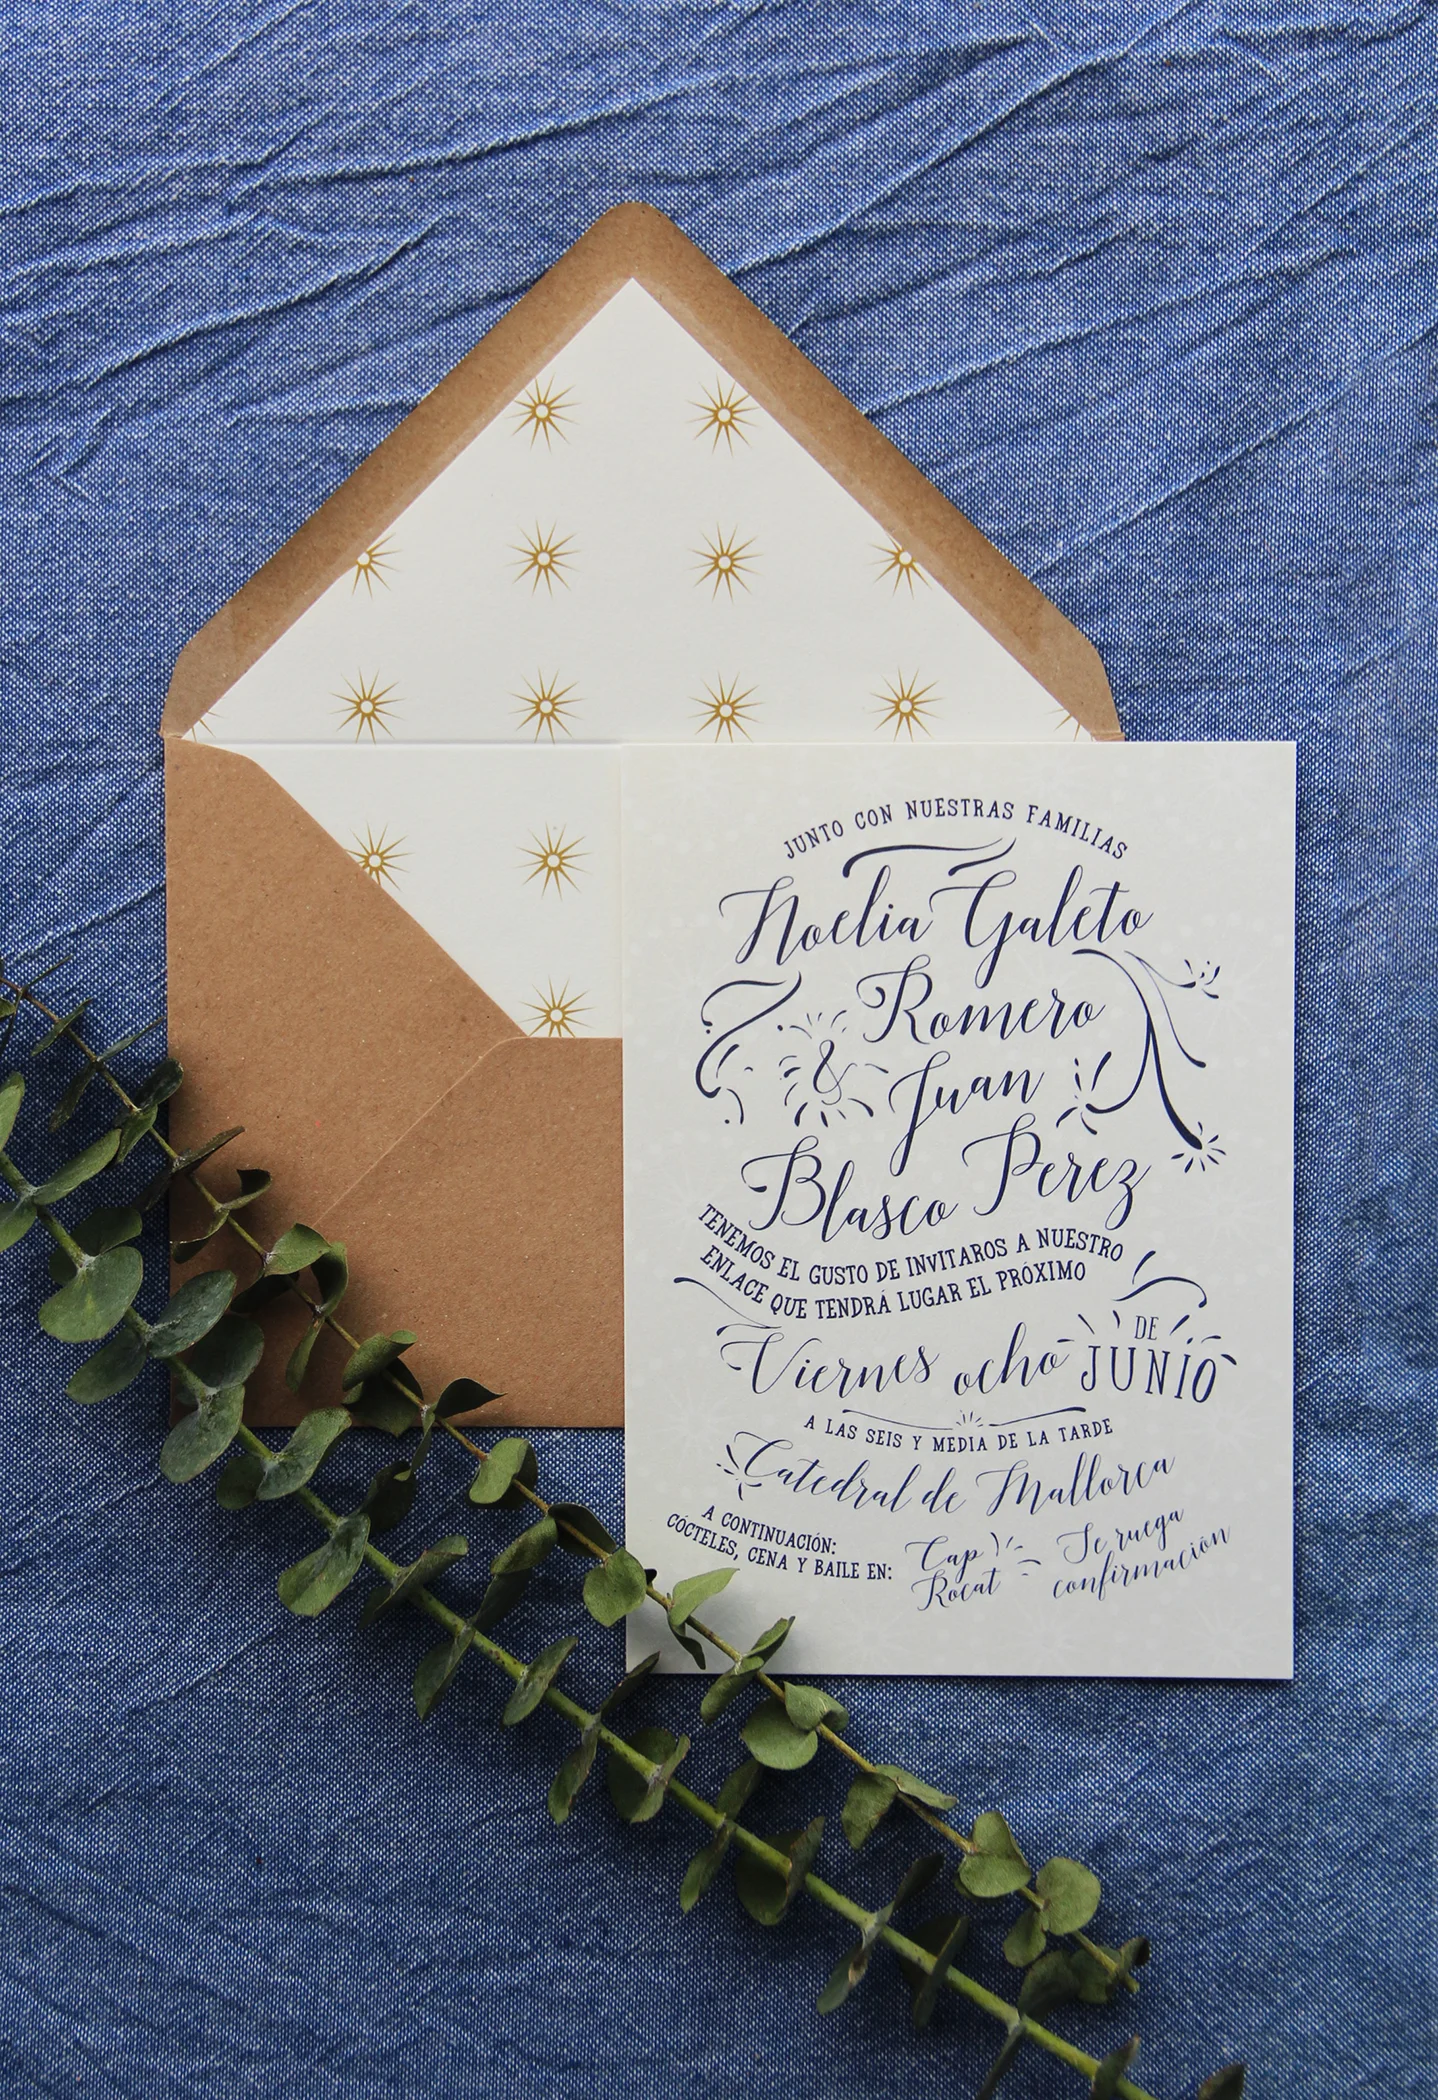 JUNTO CON NUESTRAS FAMILIAS
Noelia Galeto
Romero
& Juan
Blasco Perez
TENEMOS EL GUSTO DE INVITAROS A NUESTRO
ENLACE QUE TENDRÁ LUGAR EL PRÓXIMO
Viernes ocho DE JUNIO
A LAS SEIS Y MEDIA DE LA TARDE
Catedral de Mallorca
A CONTINUACIÓN:
CÓCTELES, CENA Y BAILE EN:
Cap
Rocat
Se ruega
confirmación